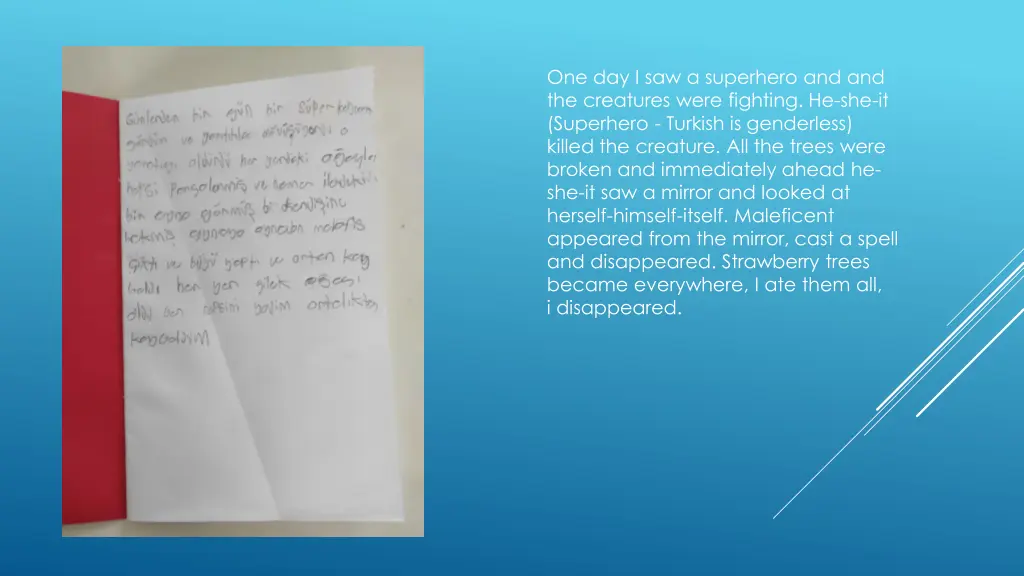 Günlerden bir gün bir süper kahraman
gördüm ve yaratıkla dövüşüyordu o
yaratığı öldürdü her yerdeki ağaçlar
hepsi parçalanmış ve hemen ilerideki
bir ayna görmüş bi kendisine
bakmış aynaya aynadan malefis
çıktı ve büyü yaptı ve ortan kay
boldu her yer çilek ağacı
oldu ben hepsini yedim ortalıktan
kayboldum
One day I saw a superhero and and
the creatures were fighting. He-she-it
(Superhero - Turkish is genderless)
killed the creature. All the trees were
broken and immediately ahead he-
she-it saw a mirror and looked at
herself-himself-itself. Maleficent
appeared from the mirror, cast a spell
and disappeared. Strawberry trees
became everywhere, I ate them all,
i disappeared.